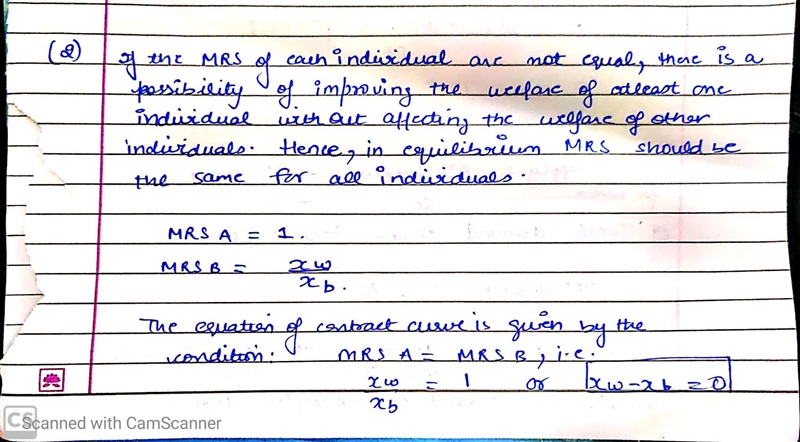 (2) If the MRS of each individual are not equal, there is a
possibility of improving the welfare of atleast one
individual with out affecting the welfare of other
individuals. Hence, in equilibrium MRS should be
the same for all individuals.
MRS A = 1.
MRS B = xw
xb.
The equation of contract curve is given by the
condition: MRS A = MRS B, i.e.
xw = 1 or xw - xb = 0
xb
CS Scanned with CamScanner